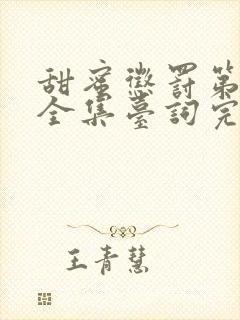 甜蜜懲罰第
全集臺詞完
王青慧